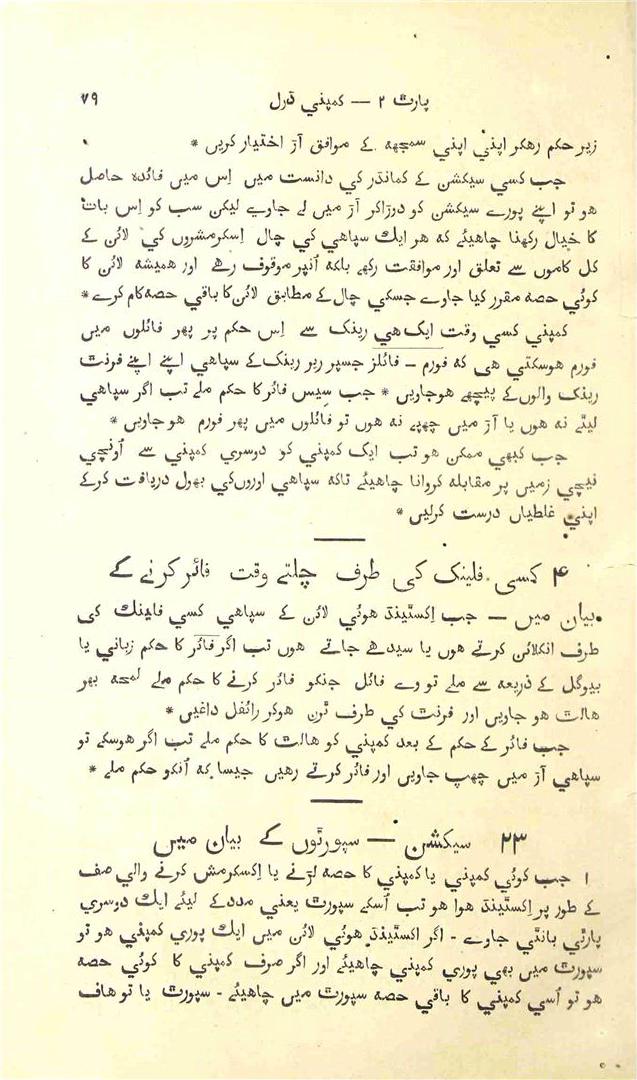 پارٹ ۲ — کمپني ڈرل ۷۹
زیر حکم رهکر اپني اپني سمجهہ کے موافق آڑ اختیار کریں *
جب کسي سیکشن کے کمانڈر کي دانست میں اِس میں فائدہ حاصل
هو تو اپنے پورے سیکشن کو دوڑاکر آڑ میں لے جاوے لیکن سب کو اِس بات
کا خیال رکهنا چاهیئے کہ هر ایك سپاهي کي چال اِسکرمشروں کي لائن کے
کل کاموں سے تعلق اور موافقت رکهے بلکہ اُنپر موقوف رهے اور همیشہ لائن کا
کوئي حصہ مقرر کیا جاوے جسکي چال کے مطابق لائن کا باقي حصہ کام کرے *
کمپني کسي وقت ایک هي رینک سے اِس حکم پر پهر فائلوں میں
فورم هوسکتي هی کہ فورم — فائلز جسپر ریر رینک کے سپاهي اپنے اپنے فرنٹ
رینک والوں کے پیچهے هوجاویں * جب سِیس فائر کا حکم ملے تب اگر سپاهي
لیٹے نہ هوں یا آڑ میں چهپے نہ هوں تو فائلوں میں پهر فورم هو جاویں *
جب کبهي ممکن هو تب ایک کمپني کو دوسري کمپني سے اُونچي
نیچي زمیں پر مقابلہ کروانا چاهیئے تاکہ سپاهي اوروں کي بهول دریافت کرکے
اپني غلطیاں درست کرلیں *
۴ کسی فلینک کی طرف چلتے وقت فائر کرنے کے
بیان میں — جب اِکسٹینڈ هوئي لائن کے سپاهي کسي فلینك کی
طرف انکلائن کرتے هوں یا سیدهے جاتے هوں تب اگر فائر کا حکم زباني یا
بیوگل کے ذریعہ سے ملے تو وے فائل جنکو فائر کرنے کا حکم ملے لمحہ بهر
هالٹ هو جاویں اور فرنٹ کي طرف ٹرن هوکر رائفل داغیں *
جب فائر کے حکم کے بعد کمپني کو هالٹ کا حکم ملے تب اگر هوسکے تو
سپاهي آڑ میں چهپ جاویں اور فائر کرتے رهیں جیسا کہ اُنکو حکم ملے *
۲۳ سیکشن — سپورٹوں کے بیان میں
۱ جب کوئي کمپني یا کمپني کا حصہ لڑنے یا اِکسکرمش کرنے والي صف
کے طور پر اِکسٹینڈ هوا هو تب اُسکے سپورٹ یعني مدد کے لیئے ایك دوسري
پارٹي بانٹي جاوے - اگر اکسٹینڈ هوئي لائن میں ایك پوري کمپني هو تو
سپورٹ میں بهي پوري کمپني چاهیئے اور اگر صرف کمپني کا کوئي حصہ
هو تو اُسي کمپني کا باقي حصہ سپورٹ میں چاهیئے - سپورٹ یا تو هاف